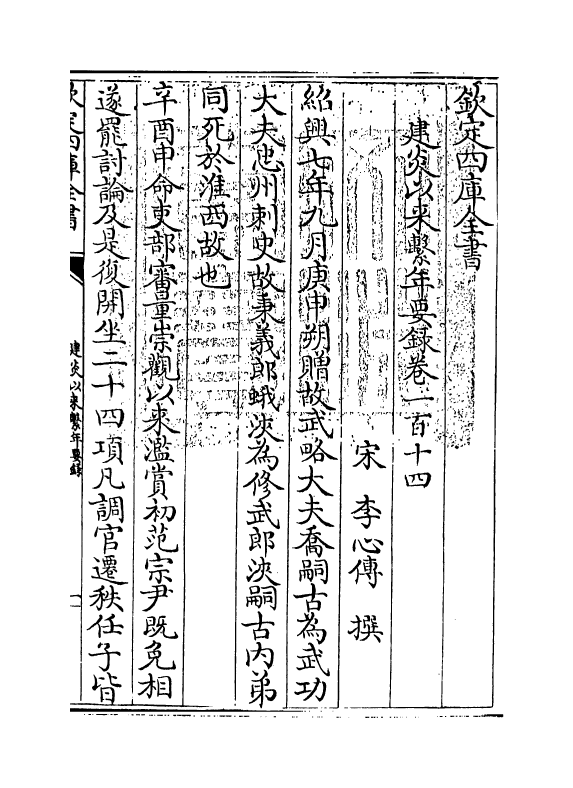 欽定四庫全書
建炎以来繫年要録卷一百十四
宋 李心傳 撰
紹興七年九月庚申朔贈故武略大夫喬嗣古為武功
大夫忠州刺史故秉義郎蛾浹為修武郎浹嗣古内弟
同死於淮西故也
辛酉申命吏部審量崇觀以来濫賞初范宗尹既免相
遂罷討論及是復開坐二十四項凡調官遷秩任子皆
欽定四庫全書
建炎以来繫年要録
一